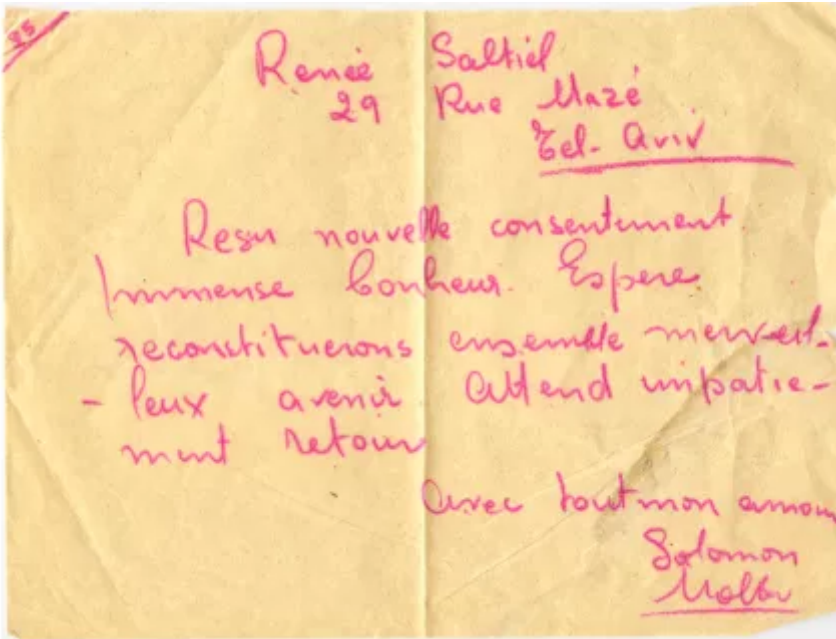 85
Renée Saltiel
29 Rue Mazé
Tel-Aviv
Resu nouvelle consentement
Immense bonheur. Espere
reconstituerons ensemble merveil-
-leux avenir attend impatie-
ment retour
avec tout mon amour
Solomon